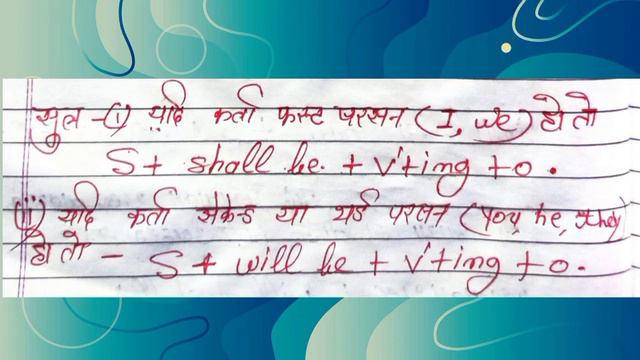 सुत्र -(i) यदि कर्ता फस्ट परसन (I, we) हो तो
S + shall be. + v'+ing + o .
(ii) यदि कर्ता सेकेन्ड या थर्ड परसन (you, he, they)
हो तो - S + will be + v'+ing + o.